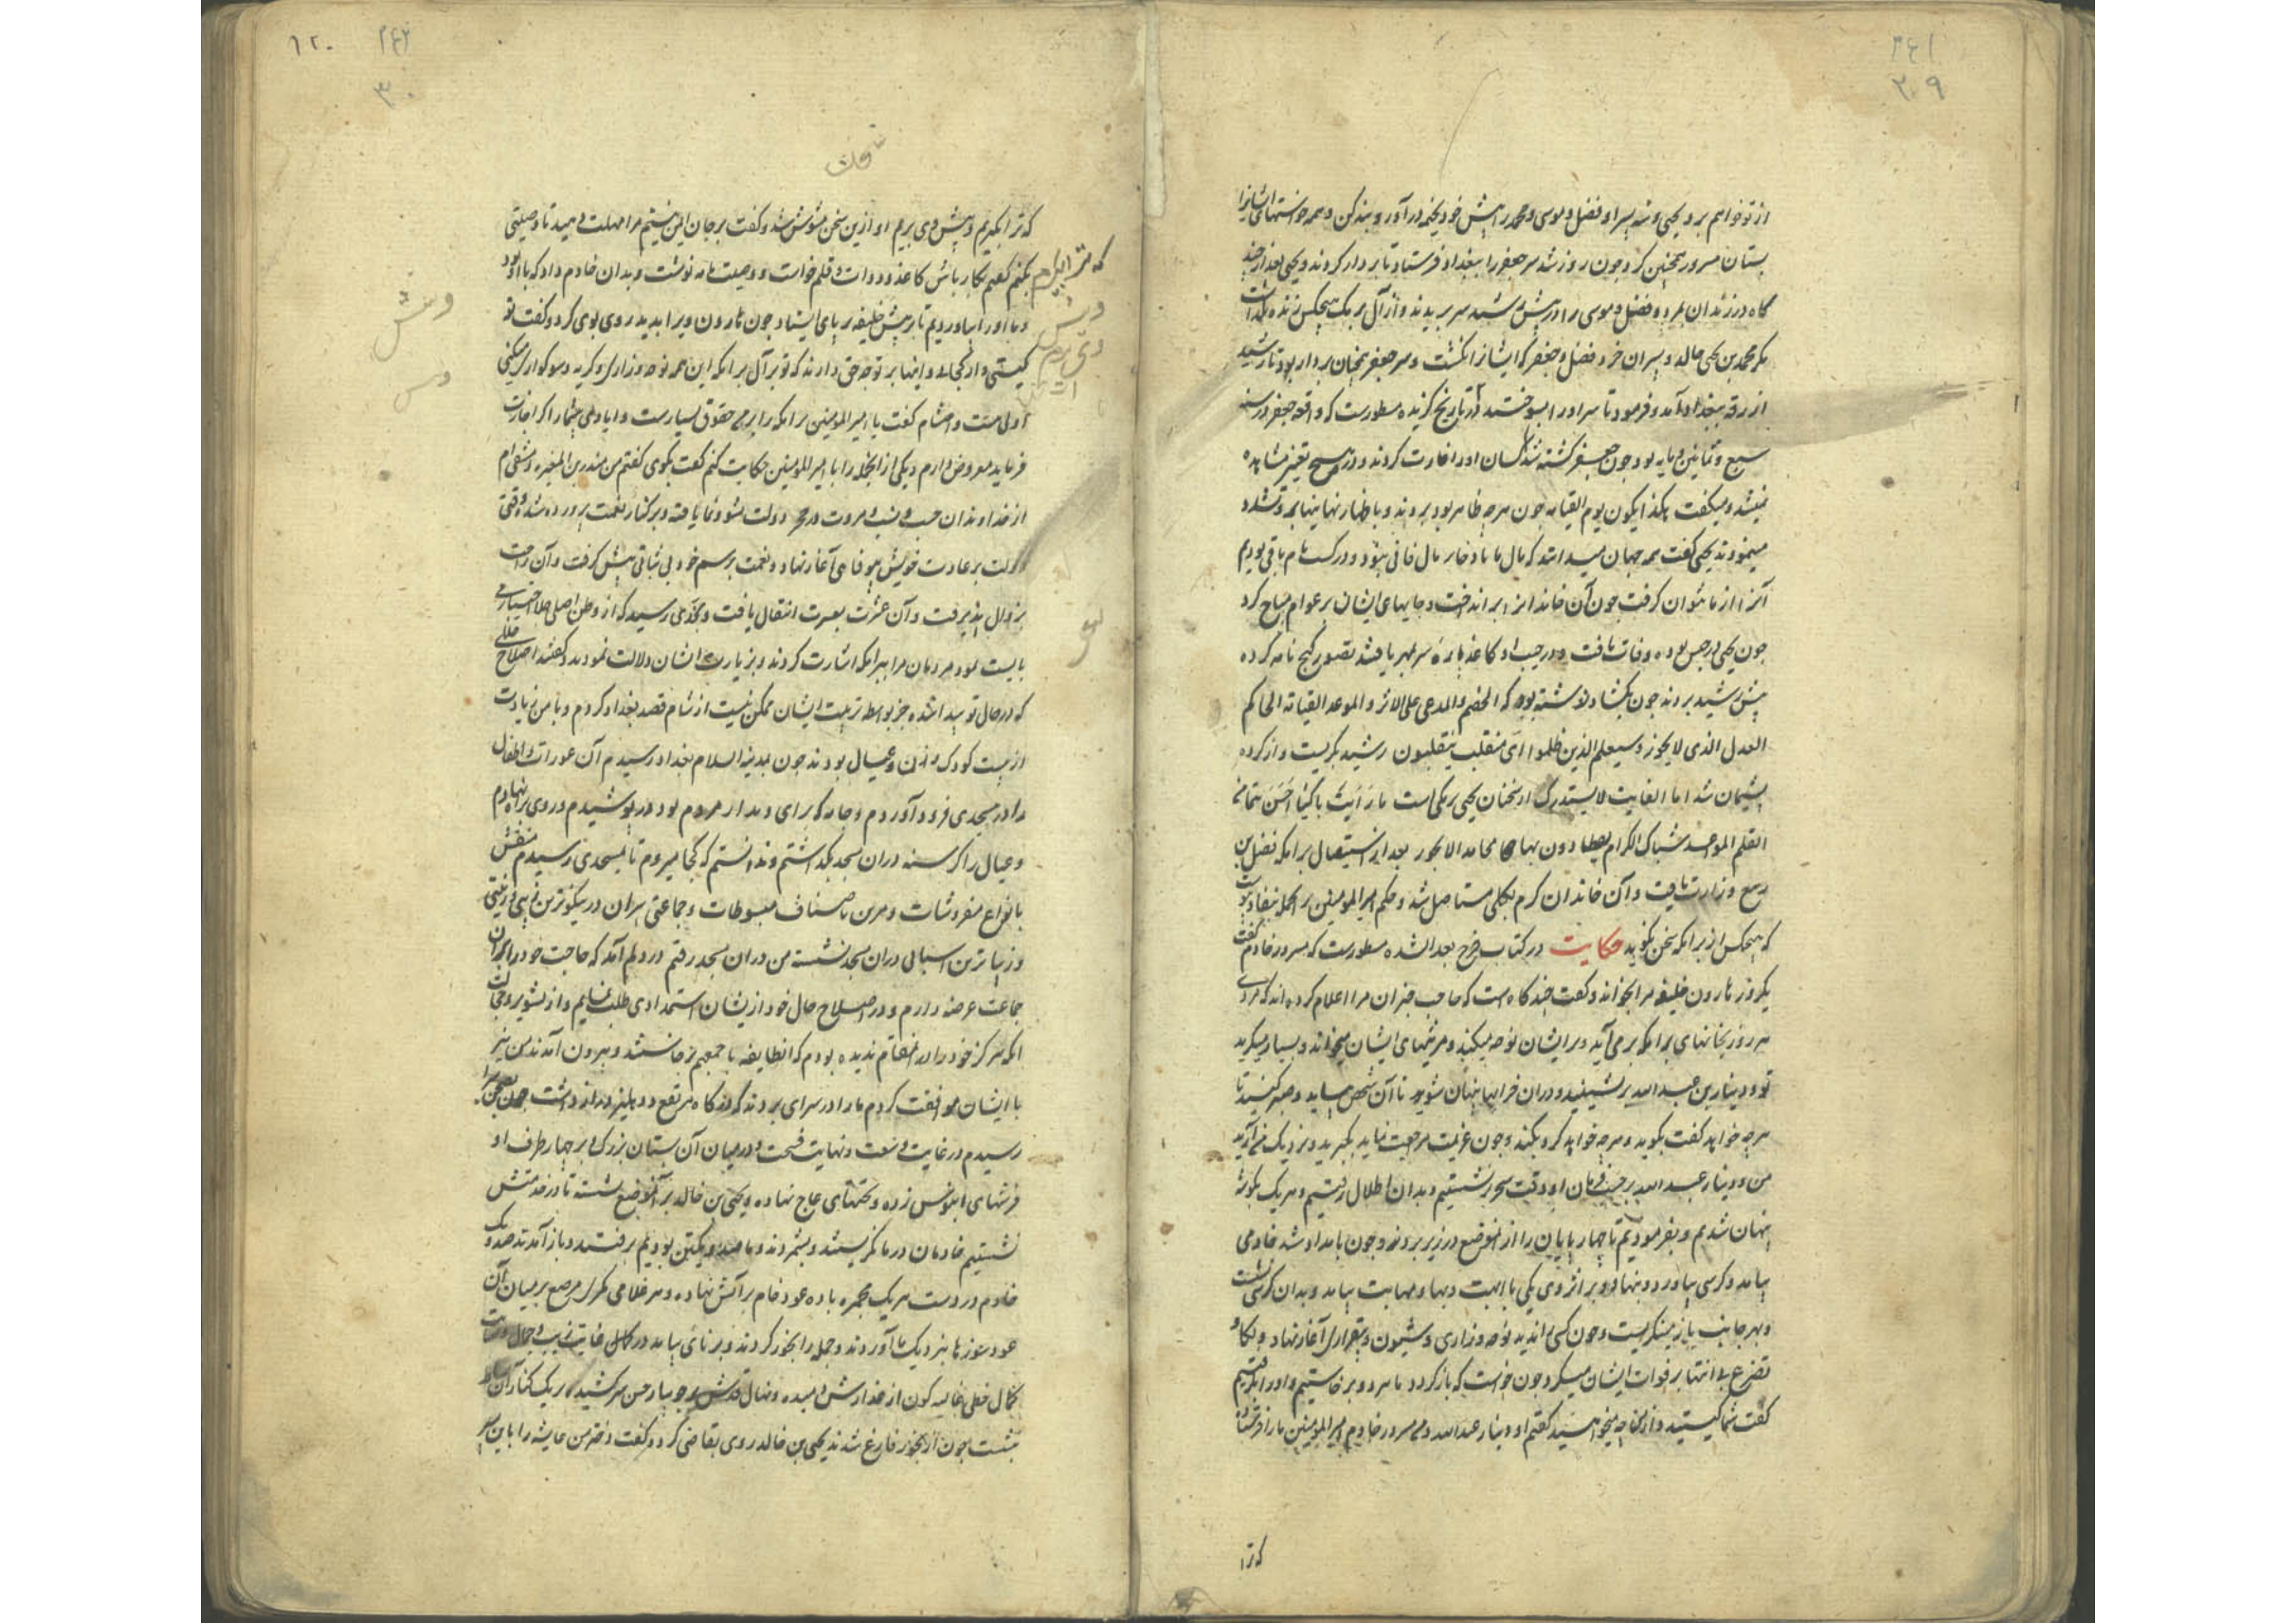 ۳۰۹
از تو خواهم برد و یحیی و سه پسر او فضل و موسی و محمد را پیش خود بخیمه درآور و بند کن و همه خواستهای ایشانرا
بستان مسرور همچنین کرد چون روز شد سر جعفر را ببغداد فرستاد تا بر دار کردند و یحیی بعد از چند
گاه در زندان بمرد و فضل و موسی را در پیش رشید سر بریدند و از آل برمک هیچکس زنده نگذاشت
مگر محمد بن یحیی خالد و پسران خرد فضل و جعفر که ایشانرا نکشت و سر جعفر همچنان بر دار بود تا رشید
از رقه ببغداد آمد و فرمود تا سر او را بسوختند در تاریخ گزیده مسطورست که واقعه جعفر در سنه
سبع و ثمانین و مایه بود چون جعفر کشته شد کسان او را غارت کردند و در یحیی هیچ تغییر مشاهده
نمیشد و میگفت هکذا یکون یوم القیامه چون هرچه ظاهر بود بردند و باظهار نهانیها تشدد
مینمودند یحیی گفت همه جهان میدانند که مال ما با ذخار مال فانی نبود و در کسب نام باقی بودیم
آنرا از ما نتوان گرفت چون آن خاندانرا برانداخت و جایهای ایشان بر عوام مباح کرد
چون یحیی در حبس بود وفات یافت و در جیب او کاغذ پاره سر بمهر یافتند تصور گنج نامه کرده
پیش رشید بردند چون بگشاد نوشته بود که الخصم والمدعی علی الاثر و الموعد القیامة الحاکم
العدل الذی لا یجوز و سیعلم الذین ظلموا ای منقلب ینقلبون رشید بگریست و از کرده
پشیمان شد اما الفایت لا یستدرک از سخنان یحیی برمکی است ما رایت باکیا احسن تبسما من
القلم الموعد شباک الکرام یصطادون بها محامد الاحرار بعد از استیصال برامکه فضل بن
ربیع وزارت یافت و آن خاندان کرم بکلی مستاصل شد و حکم امیرالمؤمنین بر انجمله بنفاذ پیوست
که هیچکس از برامکه سخن نگوید حکایت در کتاب فرج بعد الشده مسطورست که مسرور خادم گفت
یکروز هارون خلیفه مرا بخواند و گفت چند گاه است که صاحب خبران مرا اعلام کرده اند که مردی
هر روز بخانهای برامکه برمی آید و بر ایشان نوحه میکند و مرثیهای ایشان میخواند و بسیار میگرید
تو و دینار بن عبد الله بر نشینید و در ان خرابها پنهان شوید تا آن شخص بیاید و صبر کنید تا
هرچه خواهد گفت بگوید و هرچه خواهد کرد بکند و چون عزیمت مراجعت نماید بگیرید و نزدیک من آرید
من و دینار عبد الله بر حسب فرمان او وقت سحر بر نشستیم و بدان اطلال رفتیم و هر یک بگوشه
پنهان شدیم و بفرمودیم تا چهارپایان را از انموضع دورتر بردند و چون بامداد شد خادمی
بیامد و کرسی بیاورد و بنهاد و بر اثر وی یکی با هیبت و بها و مهابت بیامد و بدان کرسی نشست
و بهر جانب باز مینگریست و چون کسی را ندید نوحه و زاری و شیون و بیقراری آغاز نهاد و بکا و
تضرع بی انتها بر فوات ایشان میکرد چون خواست که باز گردد ما هر دو برخاستیم و او را بگرفتیم
گفت شما کیستید و از من چه میخواهید گفتم او دینار عبدالله و من مسرور خادم امیرالمؤمنین ما را فرستاده
که ترا
۱۲۰
۳۰
که ترا بگیریم و پیش وی بریم او ازین سخن مشوش شد و گفت بر جان ایمن نیستم مرا مهلت دهید تا وصیتی
بکنم گفتم بکار باش کاغذ و دوات و قلم خواست و وصیت نامه نوشت و بدان خادم داد که با او بود
و ما او را بیاوردیم تا در پیش خلیفه بپای ایستاد چون هارون ویرا بدید روی بوی کرد و گفت تو
کیستی و از کجایی و اینها بر تو چه حق دارند که تو بر آل برامکه این همه نوحه و زاری و گریه و سوگواری میکنی
اولی مست و احتشام گفت یا امیرالمؤمنین برامکه را بر من حقوق بسیارست و ایادی بیشمار اگر اجازت
فرماید معروض دارم و یکی از انجمله را با امیرالمؤمنین حکایت کنم گفت بگوی گفتم من منذر بن المغیره دمشقی ام
از خداوندان حسب و نسب و مروت و در حجر دولت نشو و نما یافته و بر کنار نعمت پرورده شده وقتی
دولت بر عادت خویش بیوفایی آغاز نهاد و نعمت برسم خود بی ثباتی پیش گرفت و آن راحت
زوال پذیرفت و آن عشرت بعسرت انتقال یافت و بحدی رسید که از وطن اصلی جلا اختیار می
بایست نمود مردمان مرا ببرامکه اشارت کردند و بزیارت ایشان دلالت نمودند و گفتند اصلاح خللی
که در حال تو پیدا شده جز بواسطه تربیت ایشان ممکن نیست از شام قصد بغداد کردم و با من زیادت
از بیست کودک و زن و عیال بودند چون بمدینة السلام بغداد رسیدم آن عورات و اطفال
را در مسجدی فرود آوردم و جامه که برای دیدار مردم بود در پوشیدم و روی براه نهادم
و عیال را گرسنه در ان مسجد بگذاشتم و ندانستم که کجا میروم تا بمسجدی رسیدم منقش
بانواع مفروشات و مزین باصناف مبسوطات و جماعتی پیران در نیکوترین هیئتی و زینتی
و زیباترین لباسی در ان مسجد نشسته من در ان مسجد رفتم در دلم آمد که حاجت خود بر ان
جماعت عرضه دارم و در اصلاح حال خود از ایشان استمدادی طلب نمایم و از تشویر و خجالت
آنکه هرگز خود را در آنمقام ندیده بودم که انطایفه با جمعهم برخاستند و بیرون آمدند من نیز
با ایشان موافقت کردم ما را در سرای بردند که درگاه مرتفع و دهلیز دراز داشت چون بصحن سرا
رسیدم در غایت وسعت و نهایت فسحت و در میان آن بستان بزرگ و بر چهار طرف او
فرشهای ابنوس زده و تختهای عاج نهاده و یحیی بن خالد بر انموضع نشسته تا در خدمتش
نشستیم خادمان در ما نگریستند و بشمردند و ما صد و یکتن بودیم برفتند و باز آمدند صد و یک
خادم در دست هر یک مجمره با ده عود خام بر آتش نهاده و هر غلامی کمری مرصع بر میان آن
عود سوزها بنزدیک ما آوردند و جمله را بخور کردند و برنایی بیامد در کمال
کمال خطی غالیه گون از عذارش دمیده و نهال قدش بر جویبار حسن سر کشیده بر یک کنار آن بساط
بنشست چون از بخور فارغ شدند یحیی بن خالد روی بقاضی کرد و گفت دختر من عایشه را با این پسر